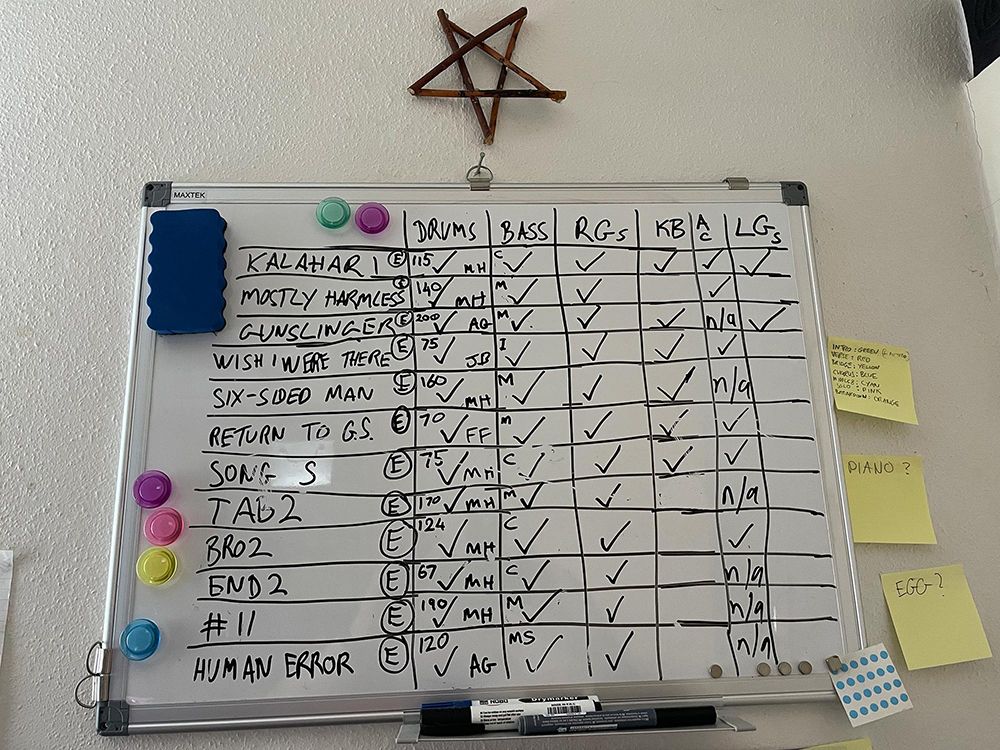 MAXTEK
DRUMS BASS RGs KB AC LGs
KALAHARI E 115 ✓ MH C ✓ ✓ ✓ ✓ ✓
MOSTLY HARMLESS E 140 ✓ MH M ✓ ✓ ✓
GUNSLINGER E 200 ✓ AG M ✓ ✓ ✓ n/a ✓
WISH I WERE THERE E 75 ✓ JB I ✓ ✓ ✓ ✓
SIX-SIDED MAN E 160 ✓ MH M ✓ ✓ ✓ n/a
RETURN TO G.S. E 70 ✓ FF M ✓ ✓ ✓ ✓
SONG S E 75 ✓ MH C ✓ ✓ ✓ ✓
TAB2 E 170 ✓ MH M ✓ ✓ n/a
BRO2 E 124 ✓ MH C ✓ ✓ ✓
END2 E 67 ✓ MH C ✓ ✓ n/a
#11 E 190 ✓ MH M ✓ ✓ n/a
HUMAN ERROR E 120 ✓ AG MS ✓ ✓ n/a
INTRO: GREEN
VERSE: RED
BRIDGE: YELLOW
CHORUS: BLUE
CYAN
SOLO: PINK
BREAKDOWN: ORANGE
PIANO?
EGG?
NOBO Drymarker